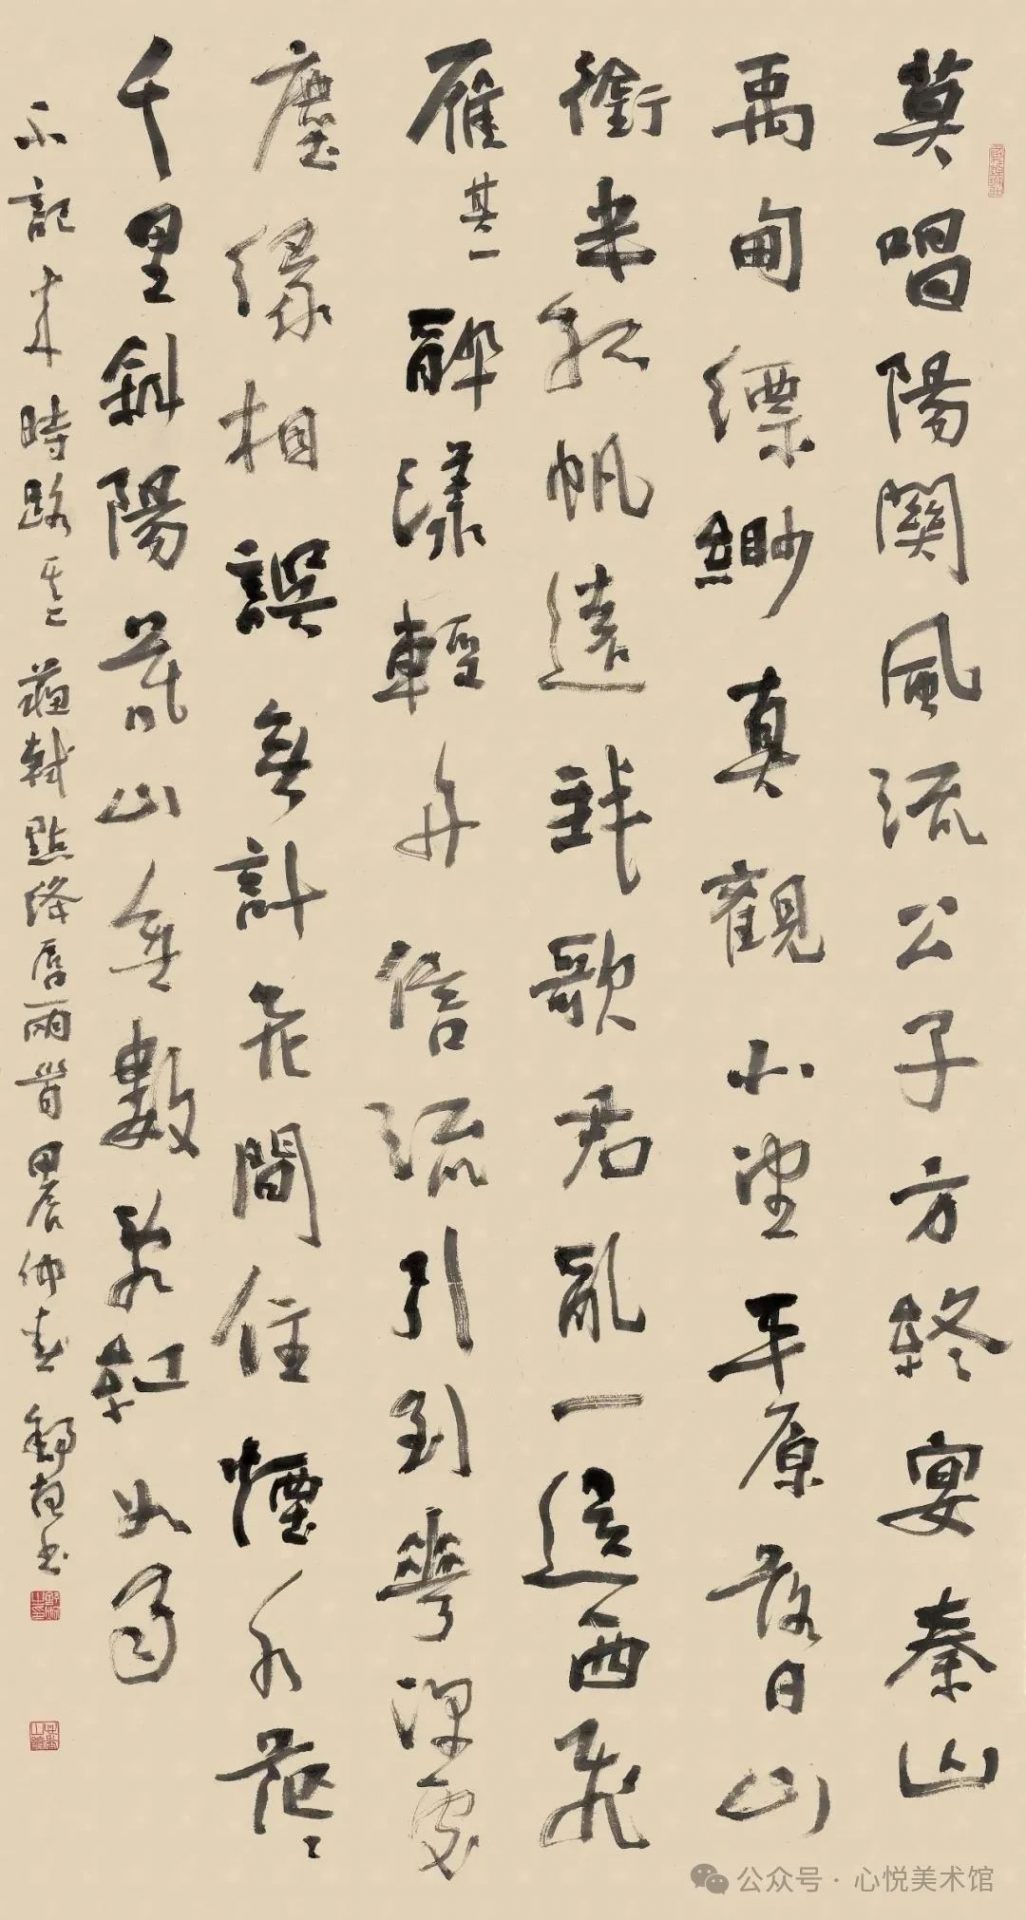 莫唱陽關風流公子方終宴秦山
禹甸縹緲真觀北望平原落日山
銜半孤帆遠我歌君亂一送西飛
雁 其一 醉漾輕舟信流引到華深處
塵緣相誤無計花間住煙水茫〻
千里斜陽暮山無數亂紅如雨
不記來時路 其二 蘇軾點絳唇兩首 甲辰仲春 書
公众号·心悦美术馆